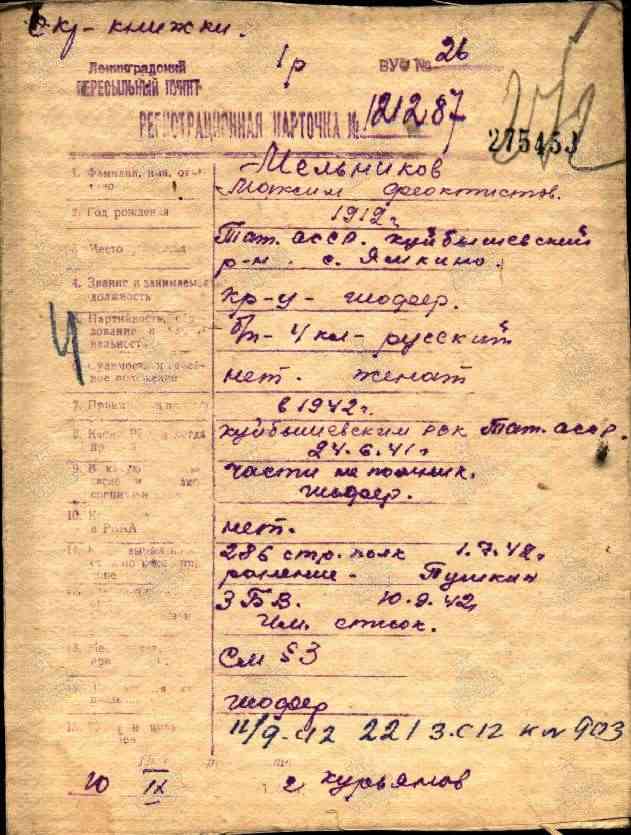 кр-книжки.
1р
ВУС № 26
Ленинградский
ПЕРЕСЫЛЬНЫЙ ПУНКТ
РЕГИСТРАЦИОННАЯ КАРТОЧКА № 121287
275453
1. Фамилия, имя, Мельников
Максим Феоктистов.
2. Год рождения 1912 г.
Место Тат. асср. куйбышевский
р-н. с. Ямкино.
4. Звание и занимаемая
должность кр-ц- шофер.
Партийность, б/п- 4 кл- русский
Ч
нет. женат
7. в 1942 г.
8. куйбышевским рвк Тат. асср.
24.6.41 г
9. В части не помнит.
шофер.
10.
в РККА нет.
286 стр. полк 1.7.42 г.
ранение- Пушкин
3 Б.В. 10.9.42
Им. список.
См § 3
шофер
11/9-42 221 З.СП К № 903
10 IX 2 курьянов